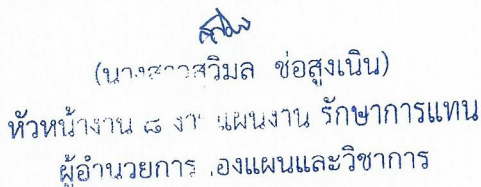 (นางสาวสุวิมล ช่อสูงเนิน)
หัวหน้างาน ๘ งานแผนงาน รักษาการแทน
ผู้อำนวยการกองแผนและวิชาการ